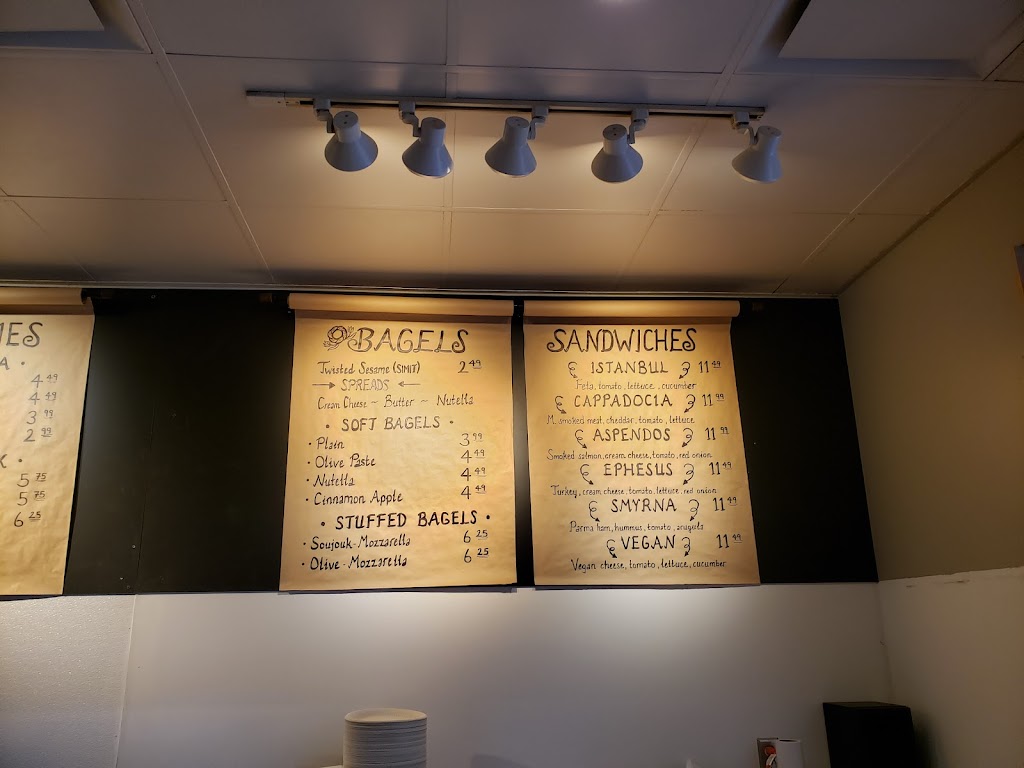 IES
A •
4 49
4 49
3 99
2 99
K •
5 75
5 75
6 25
BAGELS
Twisted Sesame (SIMIT) 2 49
SPREADS
Cream Cheese ~ Butter ~ Nutella
• SOFT BAGELS •
• Plain 3 99
• Olive Paste 4 49
• Nutella 4 49
• Cinnamon Apple 4 49
• STUFFED BAGELS •
• Soujouk-Mozzarella 6 25
• Olive-Mozzarella 6 25
SANDWICHES
ISTANBUL 11 49
Feta, tomato, lettuce, cucumber
CAPPADOCIA 11 99
M. smoked meat, cheddar, tomato, lettuce
ASPENDOS 11 99
Smoked salmon, cream cheese, tomato, red onion
EPHESUS 11 49
Turkey, cream cheese, tomato, lettuce, red onion
SMYRNA 11 99
Parma ham, hummus, tomato, arugula
VEGAN 11 49
Vegan cheese, tomato, lettuce, cucumber